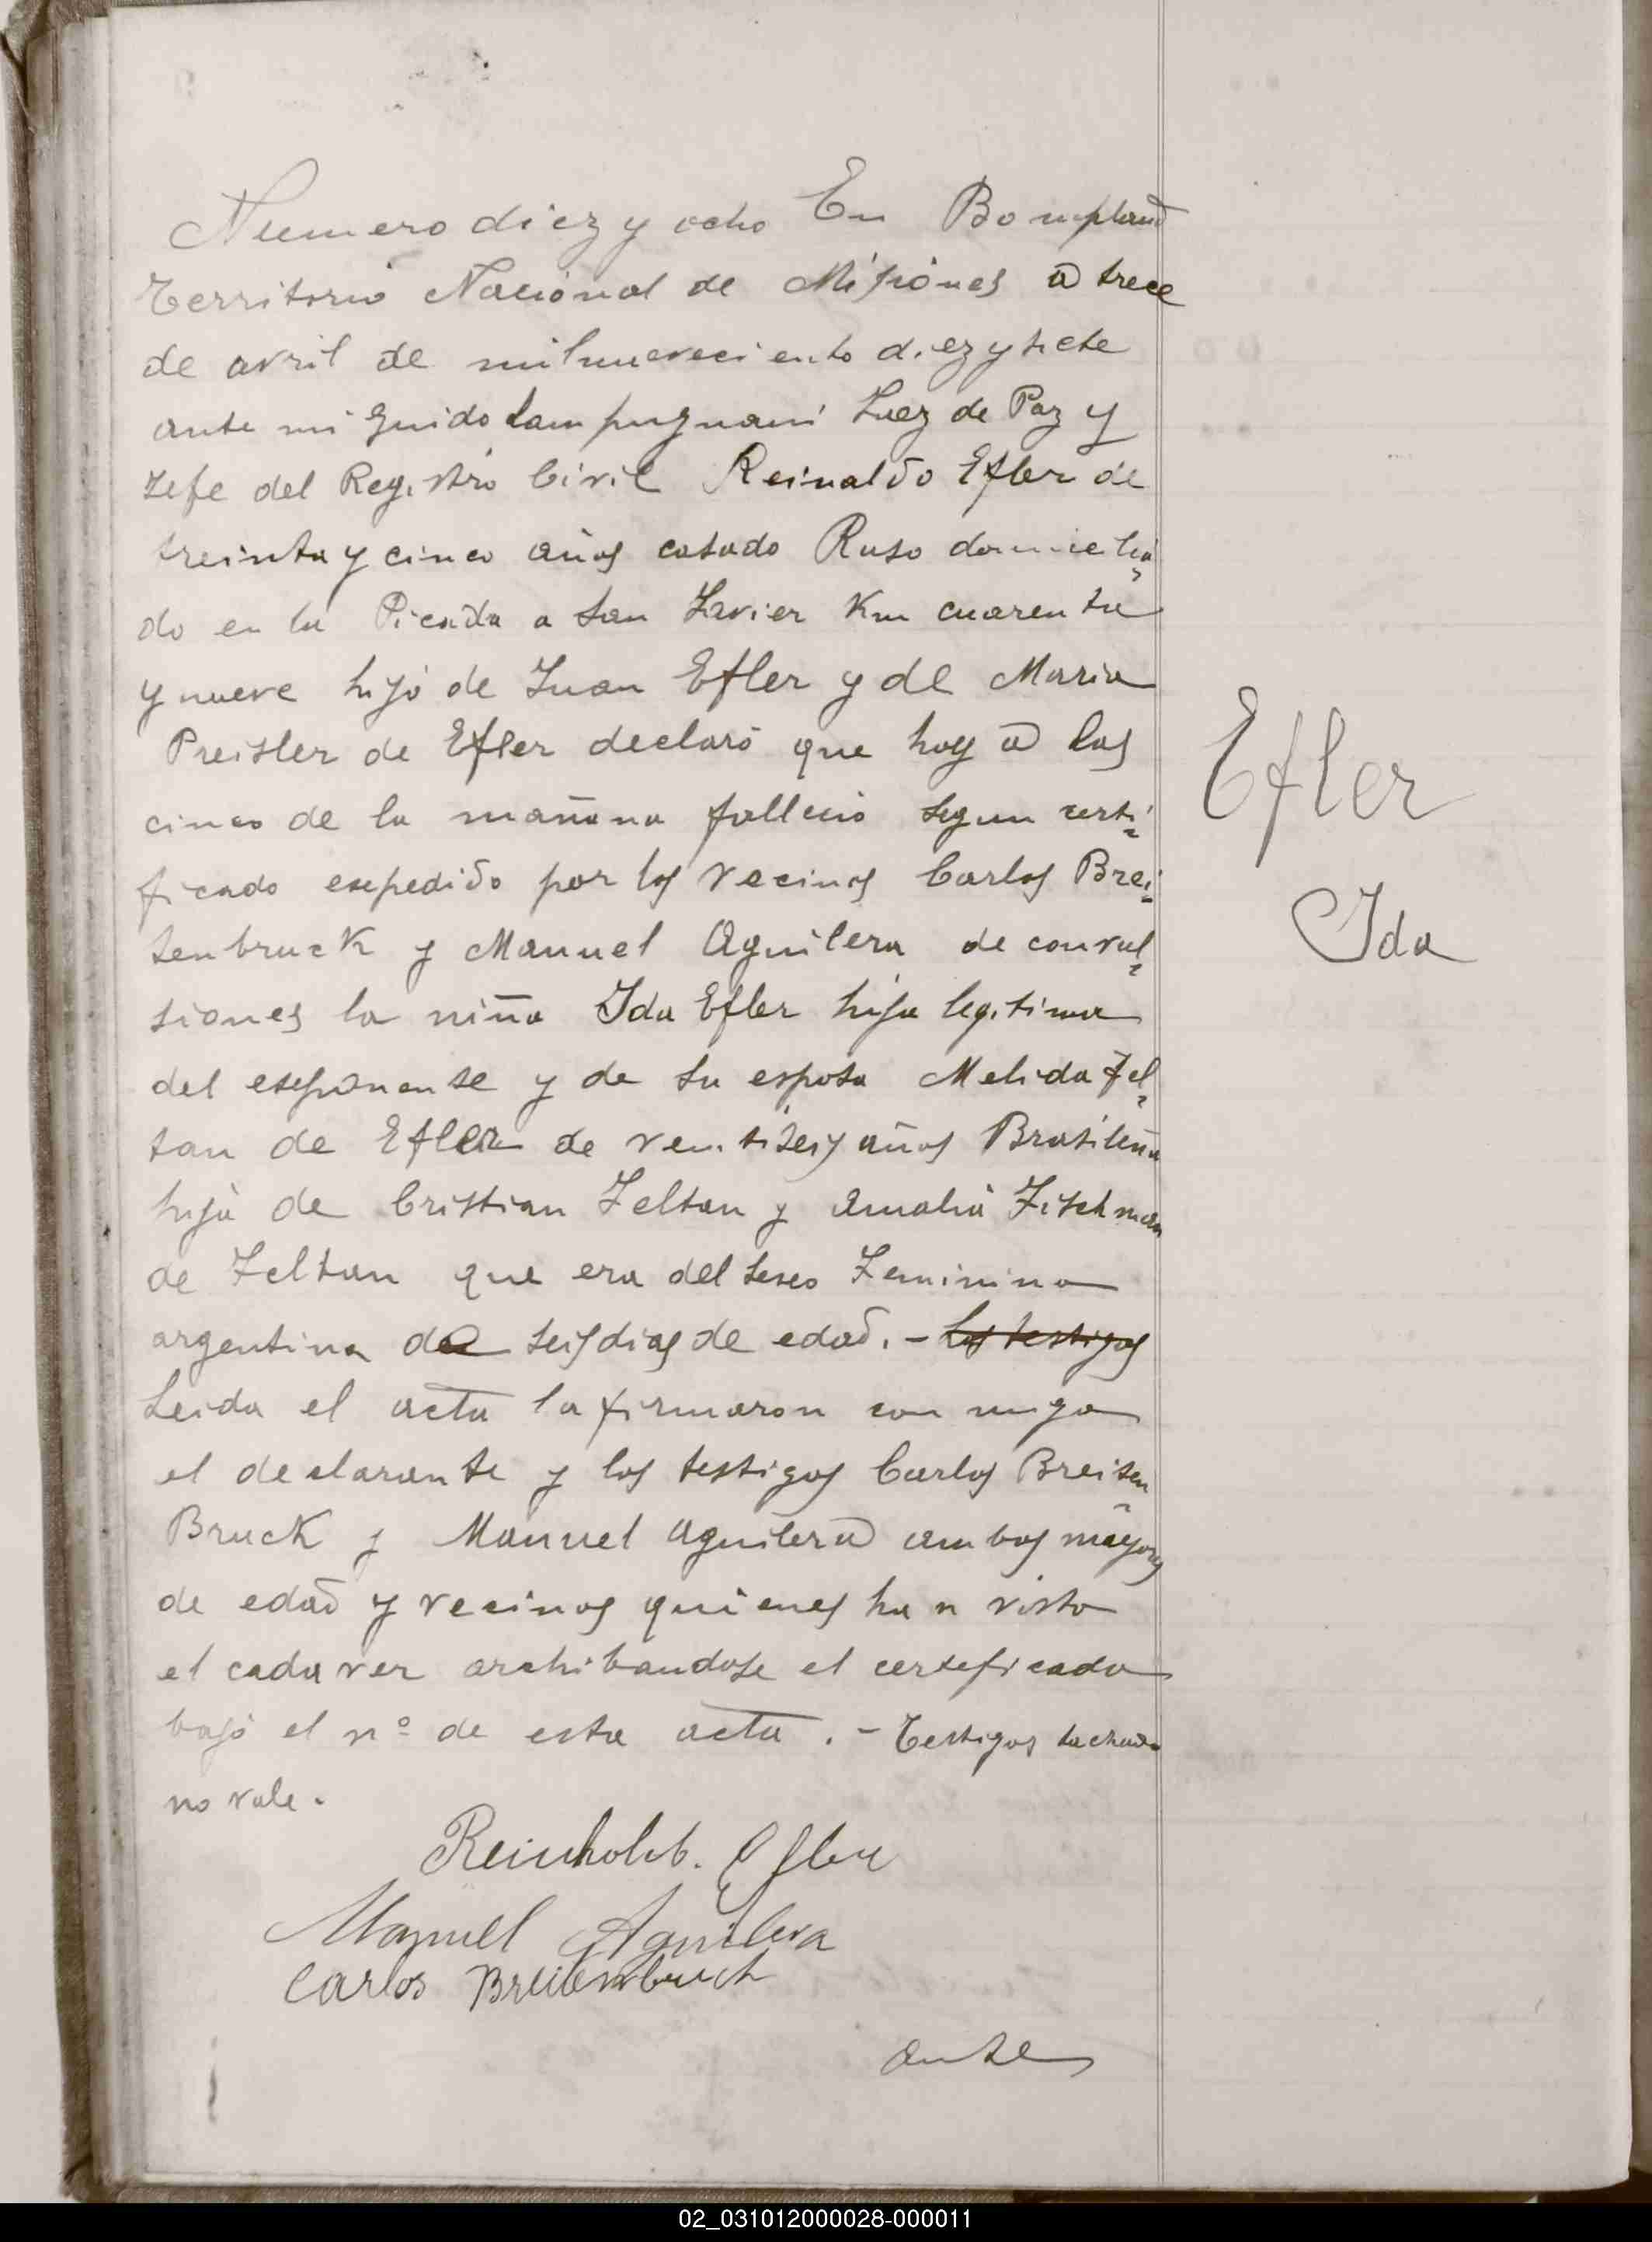 Numero diez y ocho En Bompland
Territorio Nacional de Misiones a trece
de avril de milnuereciento diez y siete
ante mi Guido Lampugnani Juez de Paz y
Jefe del Registro Civil Reinaldo Efler de
treinta y cinco años casado Ruso domicilia
do en la Picada a San Javier Km cuarenta
y nueve hijo de Juan Efler y de Maria
Preisler de Efler declaró que hoy a las
cinco de la mañana fallecio segun certi
ficado esepedido por los vecinos Carlos Brei
tenbruck y Manuel Aguilera de convul
siones la niña Ida Efler hija legitima
del eseponente y de su esposa Melida Fel
tan de Efler de ventiseis años Brasileña
hija de Cristian Feltan y Amalia Fischman
de Feltan que era del seseo Feminino
argentina de seis dias de edad. - Los testigos
Leida el acta la firmaron con migo
el declarante y los testigos Carlos Breiten
Bruck y Manuel Aguilera ambos mayores
de edad y vecinos quienes han visto
el cadaver archibandose el certeficado
bajo el nº de esta acta. - Testigos tachado
no vale.
Efler
Ida
Reinholdt. Efler
Manuel Aguilera
Carlos Breitenbruch
ante
02_031012000028-000011